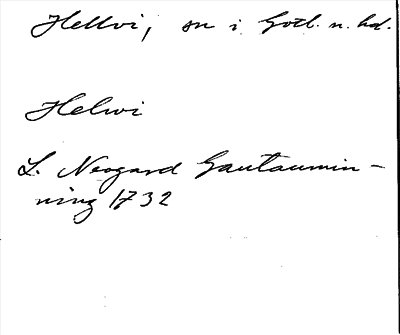 Hellvi, sn i Gotl. n. hd.
Helwi
L. Neogard Gautaumin-
ning 1732